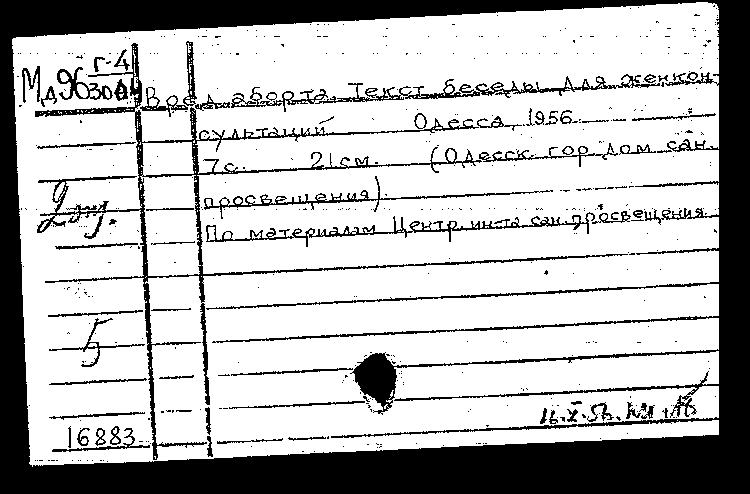 Г-4
Вред аборта. Текст беседы для женкон-
сультаций Одесса, 1956
7с. 21см. (Одесск. гор. дом сан.
просвещения)
2 экз.
По материалам Центр. ин-та сан. просвещения
5
16883
16.X.56.